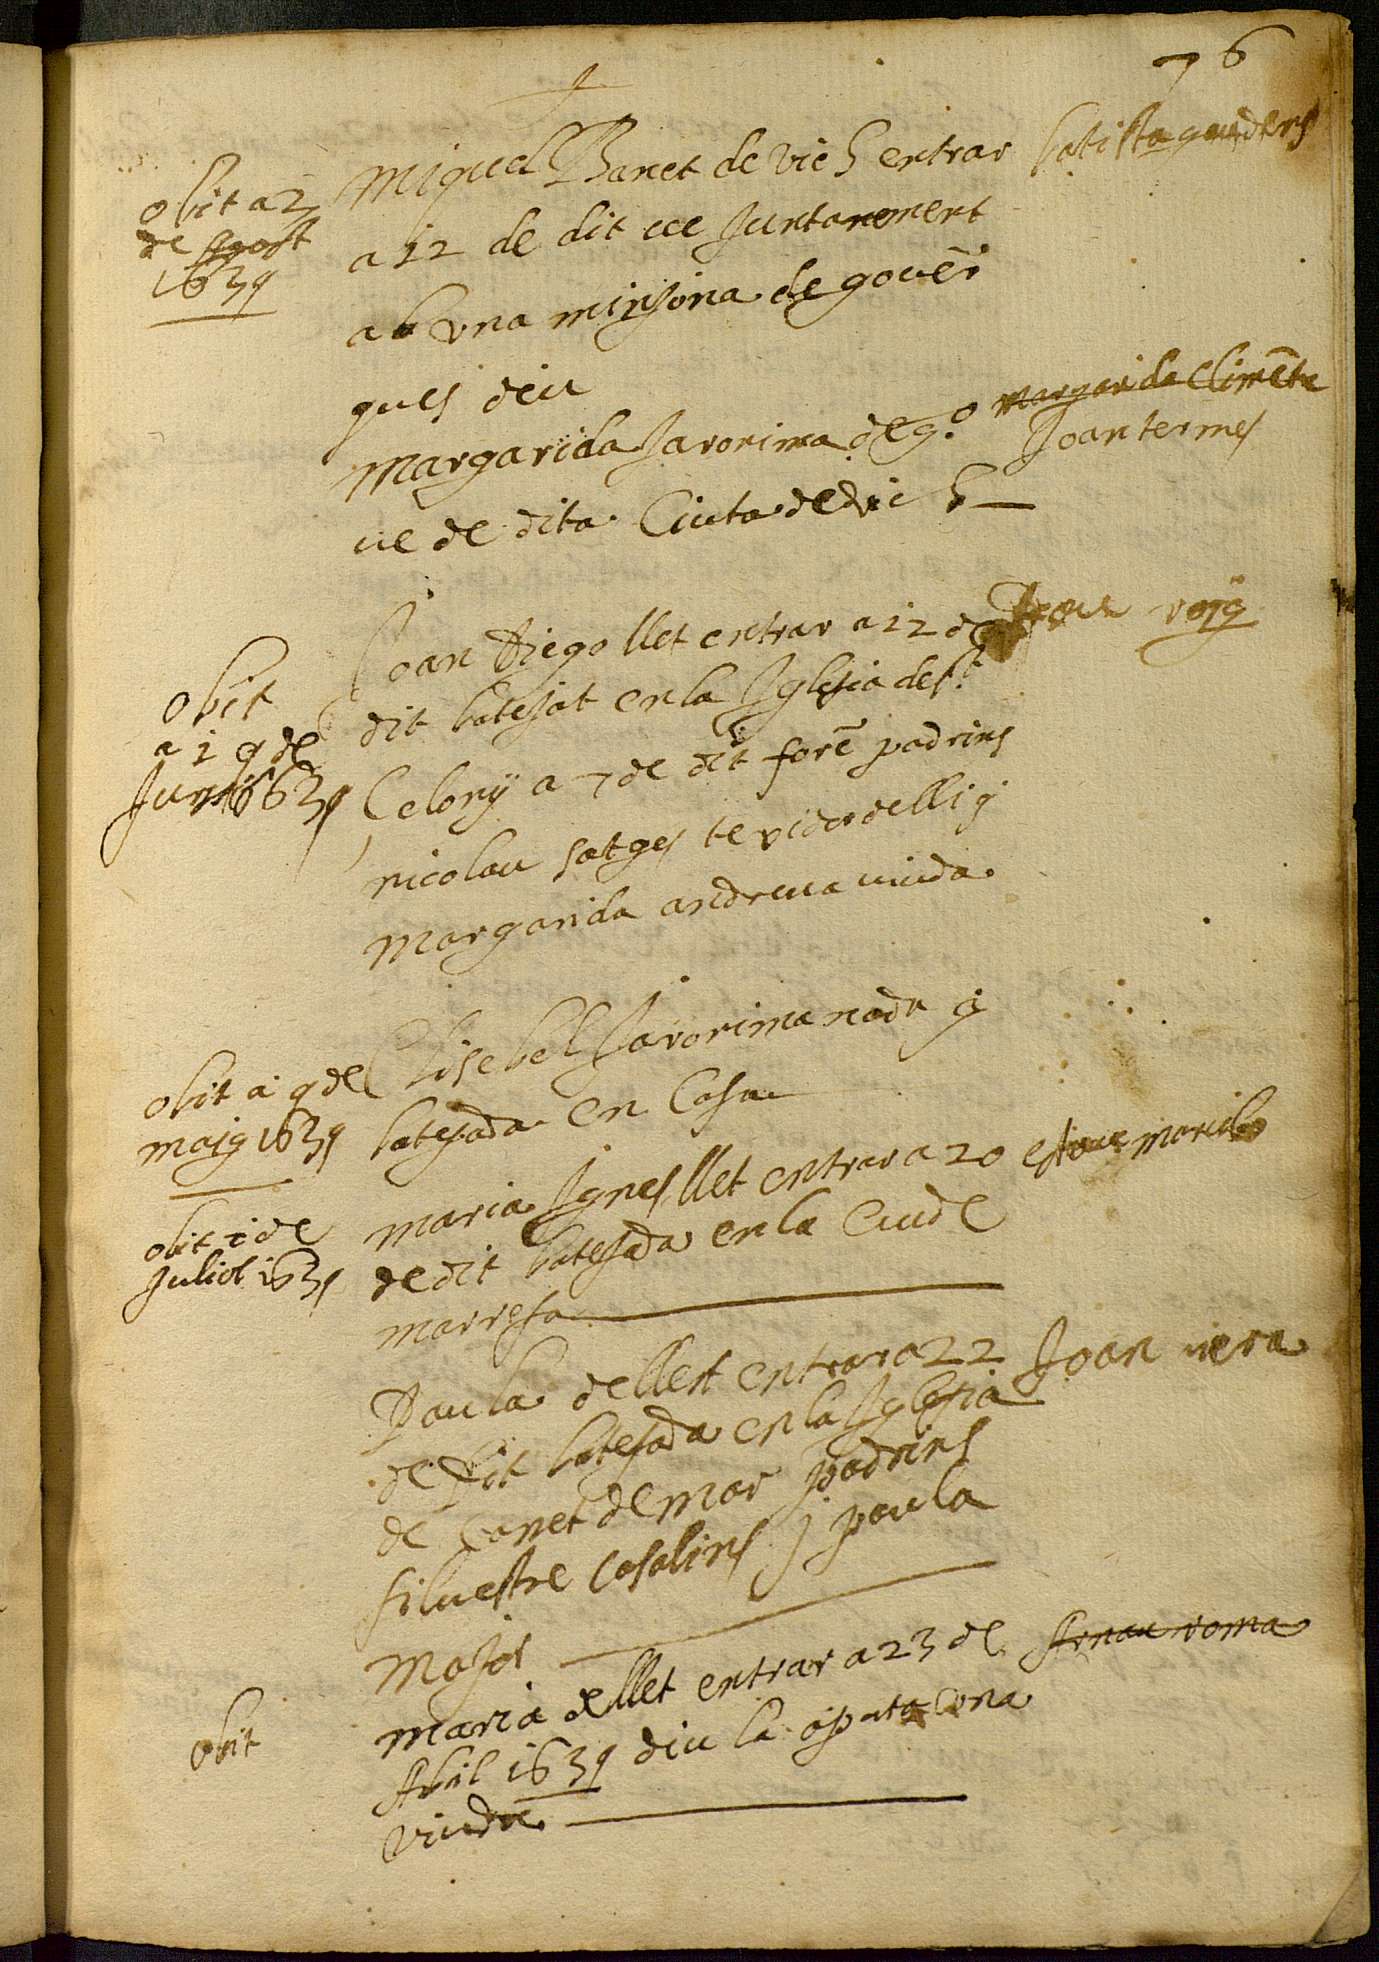 76
obit a 2
de Agost
1639
Miquel Banet de vich entrar
a 12 de dit ve Juntament
ab vna minyona de gover
ques diu
batista
Margarida Jaronima de go
ue de dita Ciuta de vic h
margarida Climēta
Joan termes
obit
a 19 de
Juny 1639
Joan Diego llet entrar a 12 de
dit batejat en la Iglesia de st
Celony a 7 de dit forē padrins
nicolau satges te vidor dell i
Margarida andreua viuda
roig
obit a 9 de
maig 1639
Elisebel Jaronima nada y
batejada en Casa
obit 7 de
Juliol 1639
maria Ignes llet entrar a 20
de dit batejada en la Ciu de
manresa
esteue
Paula de llet entrar a 22
de dit batejada en la Iglesia
de Canet de mar padrins
siluestre Casalins j paula
Major
Joan vera
obit
maria de llet entrar a 23 de
Abril 1639 diu la aportaCona
viuda
Arnau roma